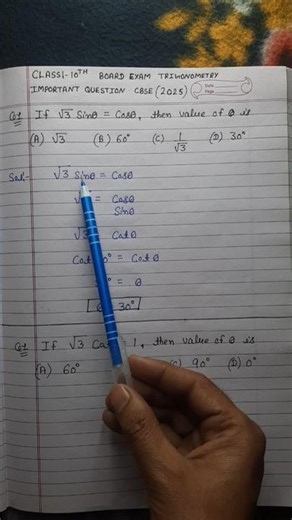 CLASS:-10TH BOARD EXAM TRIGONOMETRY
IMPORTANT QUESTION CBSE (2025)
Date
Page
Q1 If √3 Sinθ = Cosθ, then value of θ is
(A) √3 (B) 60° (C) 1/√3 (D) 30°
Sol:- √3 Sinθ = Cosθ
= Cosθ/Sinθ
√3 Cotθ
Cot 0° = Cotθ
0° = θ
30°
If √3 1, then value of θ is
(A) 60° (C) 90° (D) 0°